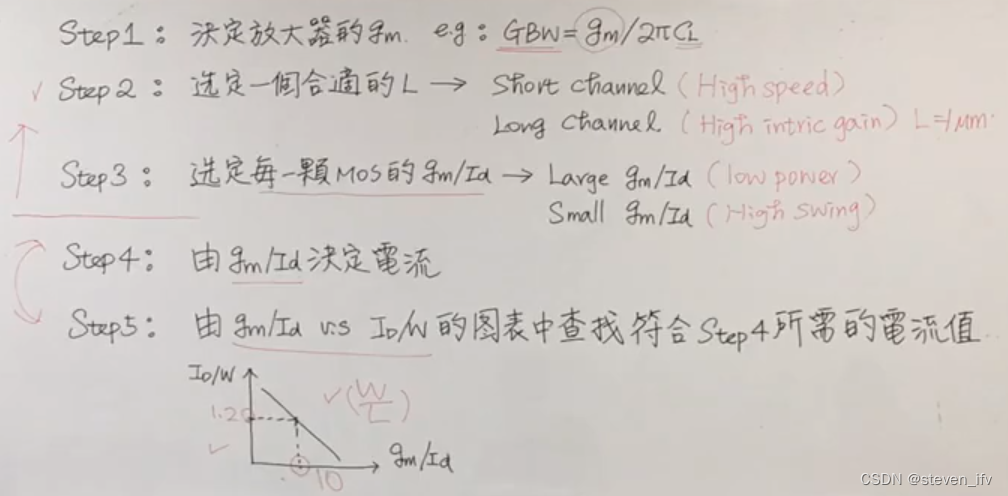 Step1：決定放大器的gm. e.g：GBW=gm/2πCL
Step2：选定一個合適的L → Short channel (High speed)
Long Channel (High intric gain) L=1μm.
Step3：选定每一顆MOS的gm/Id → Large gm/Id (low power)
Small gm/Id (High swing)
Step4：由gm/Id決定電流
Step5：由gm/Id v.s ID/W的图表中查找符合Step4所需的電流值
ID/W
(W/L)
gm/Id
10
CSDN @steven_ifv